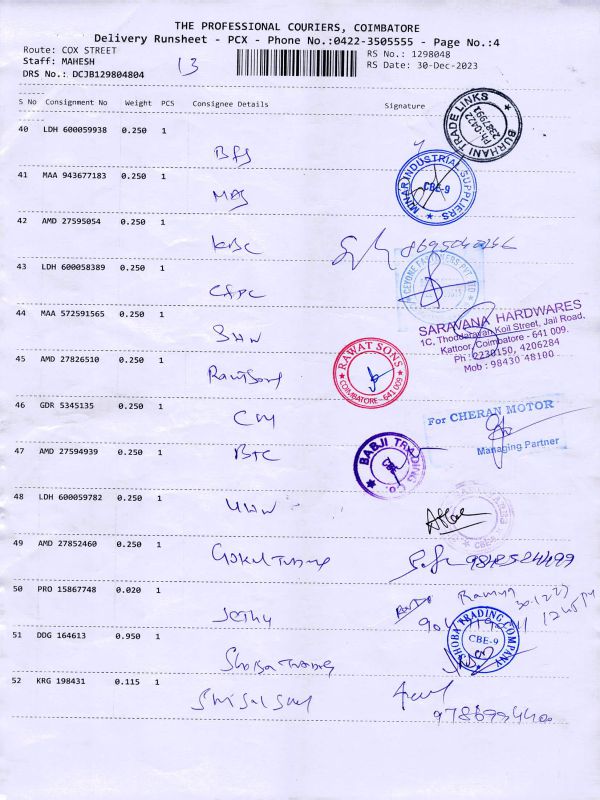 THE PROFESSIONAL COURIERS, COIMBATORE
Delivery Runsheet - PCX - Phone No.:0422-3505555 - Page No.:4
Route: COX STREET
RS No.: 1298048
Staff: MAHESH
13
RS Date: 30-Dec-2023
DRS No.: DCJB129804804
S No Consignment No Weight PCS Consignee Details Signature
BURHANI TRADE LINKS
Ph:0422
2387991
40 LDH 600059938 0.250 1
BFS
41 MAA 943677183 0.250 1
MINAR INDUSTRIAL SUPPLIERS
CBE-9
42 AMD 27595054 0.250 1
KBC
43 LDH 600058389 0.250 1
CFPC
44 MAA 572591565 0.250 1
SHW
SARAVANA HARDWARES
1C, Thoddarayan Koil Street, Jail Road,
Kattoor, Coimbatore - 641 009.
Ph : 2230150, 4206284
Mob : 98430 48100
45 AMD 27826510 0.250 1
RAWAT SONS
COIMBATORE - 641 009
46 GDR 5345135 0.250 1
CM
For CHERAN MOTOR
Managing Partner
47 AMD 27594939 0.250 1
BTC
BABJI TRADING CO.
CBE
48 LDH 600059782 0.250 1
UHW
CBE-9
49 AMD 27852460 0.250 1
50 PRO 15867748 0.020 1
Ramya
30.12.23
51 DDG 164613 0.950 1
SHOBA TRADING COMPANY
CBE-9
52 KRG 198431 0.115 1